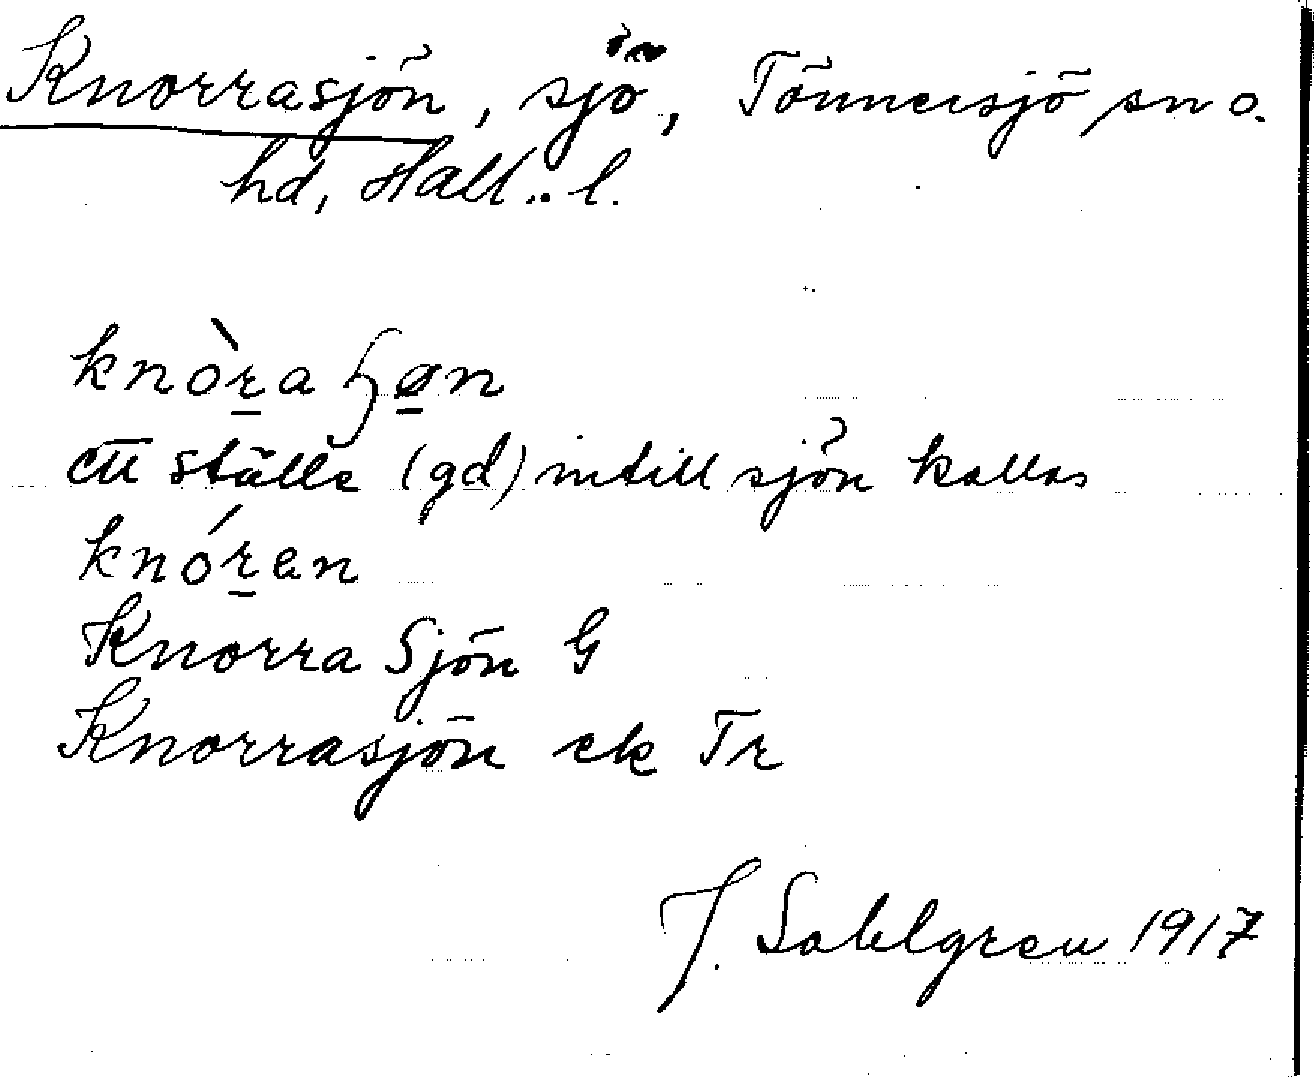 Knorrasjön, sjö, Tönnersjö sn o.
hd, Hall.. l.
knòr̲a ɧø̲n
ett ställe (gd) intill sjön kallas
knór̲an
Knorra Sjön G
Knorrasjön ek Tr
J. Sahlgren 1917